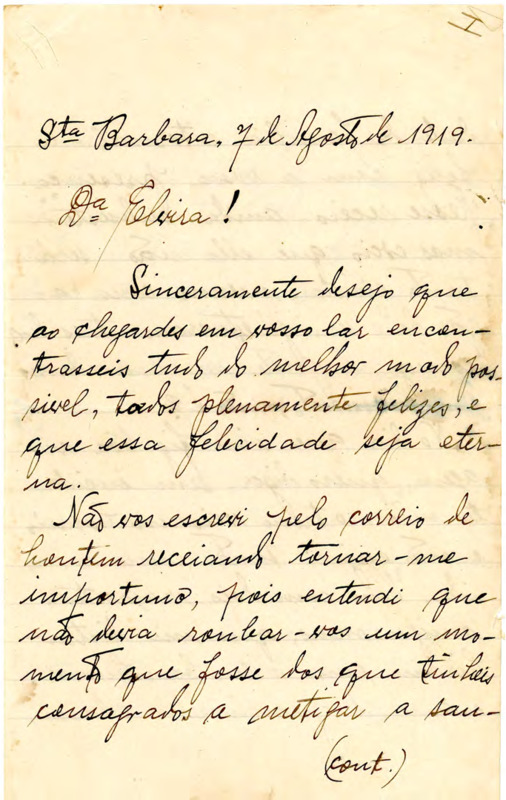 I
Sta Barbara, 7 de Agosto de 1919.
Da Elvira!
Sinceramente desejo que
ao chegardes em vosso lar encon-
trasseis tudo do melhor modo pos-
sivel, todos plenamente felizes, e
que essa felicidade seja eter-
na.
Não vos escrevi pelo correio de
hontem receiando tornar-me
importuno, pois entendi que
não devia roubar-vos um mo-
mento que fosse dos que tinheis
consagrados a metigar a sau-
(cont.)